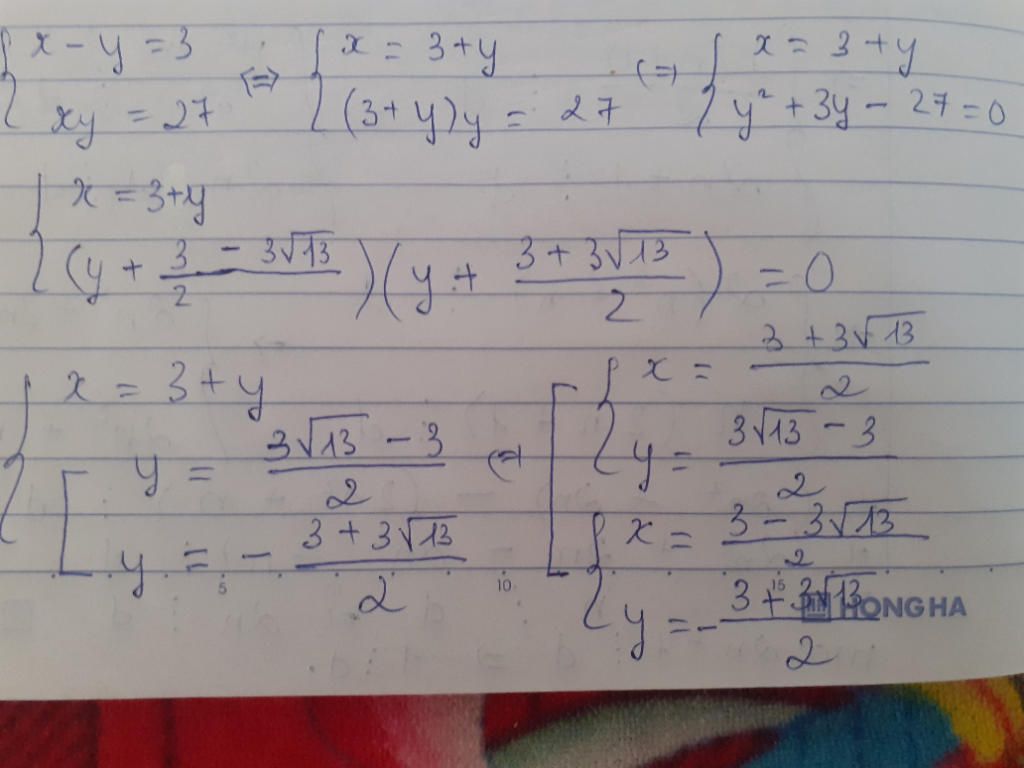 { x - y = 3 ⇔ { x = 3+y ⇔ { x = 3+y
xy = 27 (3+y)y = 27 y² + 3y - 27 = 0
{ x = 3+y
(y + (3 - 3√13)/2)(y + (3 + 3√13)/2) = 0
{ x = 3+y
[ y = (3√13 - 3)/2 ⇔ [ { x = (3 + 3√13)/2
y = (3√13 - 3)/2
y = - (3 + 3√13)/2 { x = (3 - 3√13)/2
y = - (3 + 3√13)/2
5 10 15
HONG HA